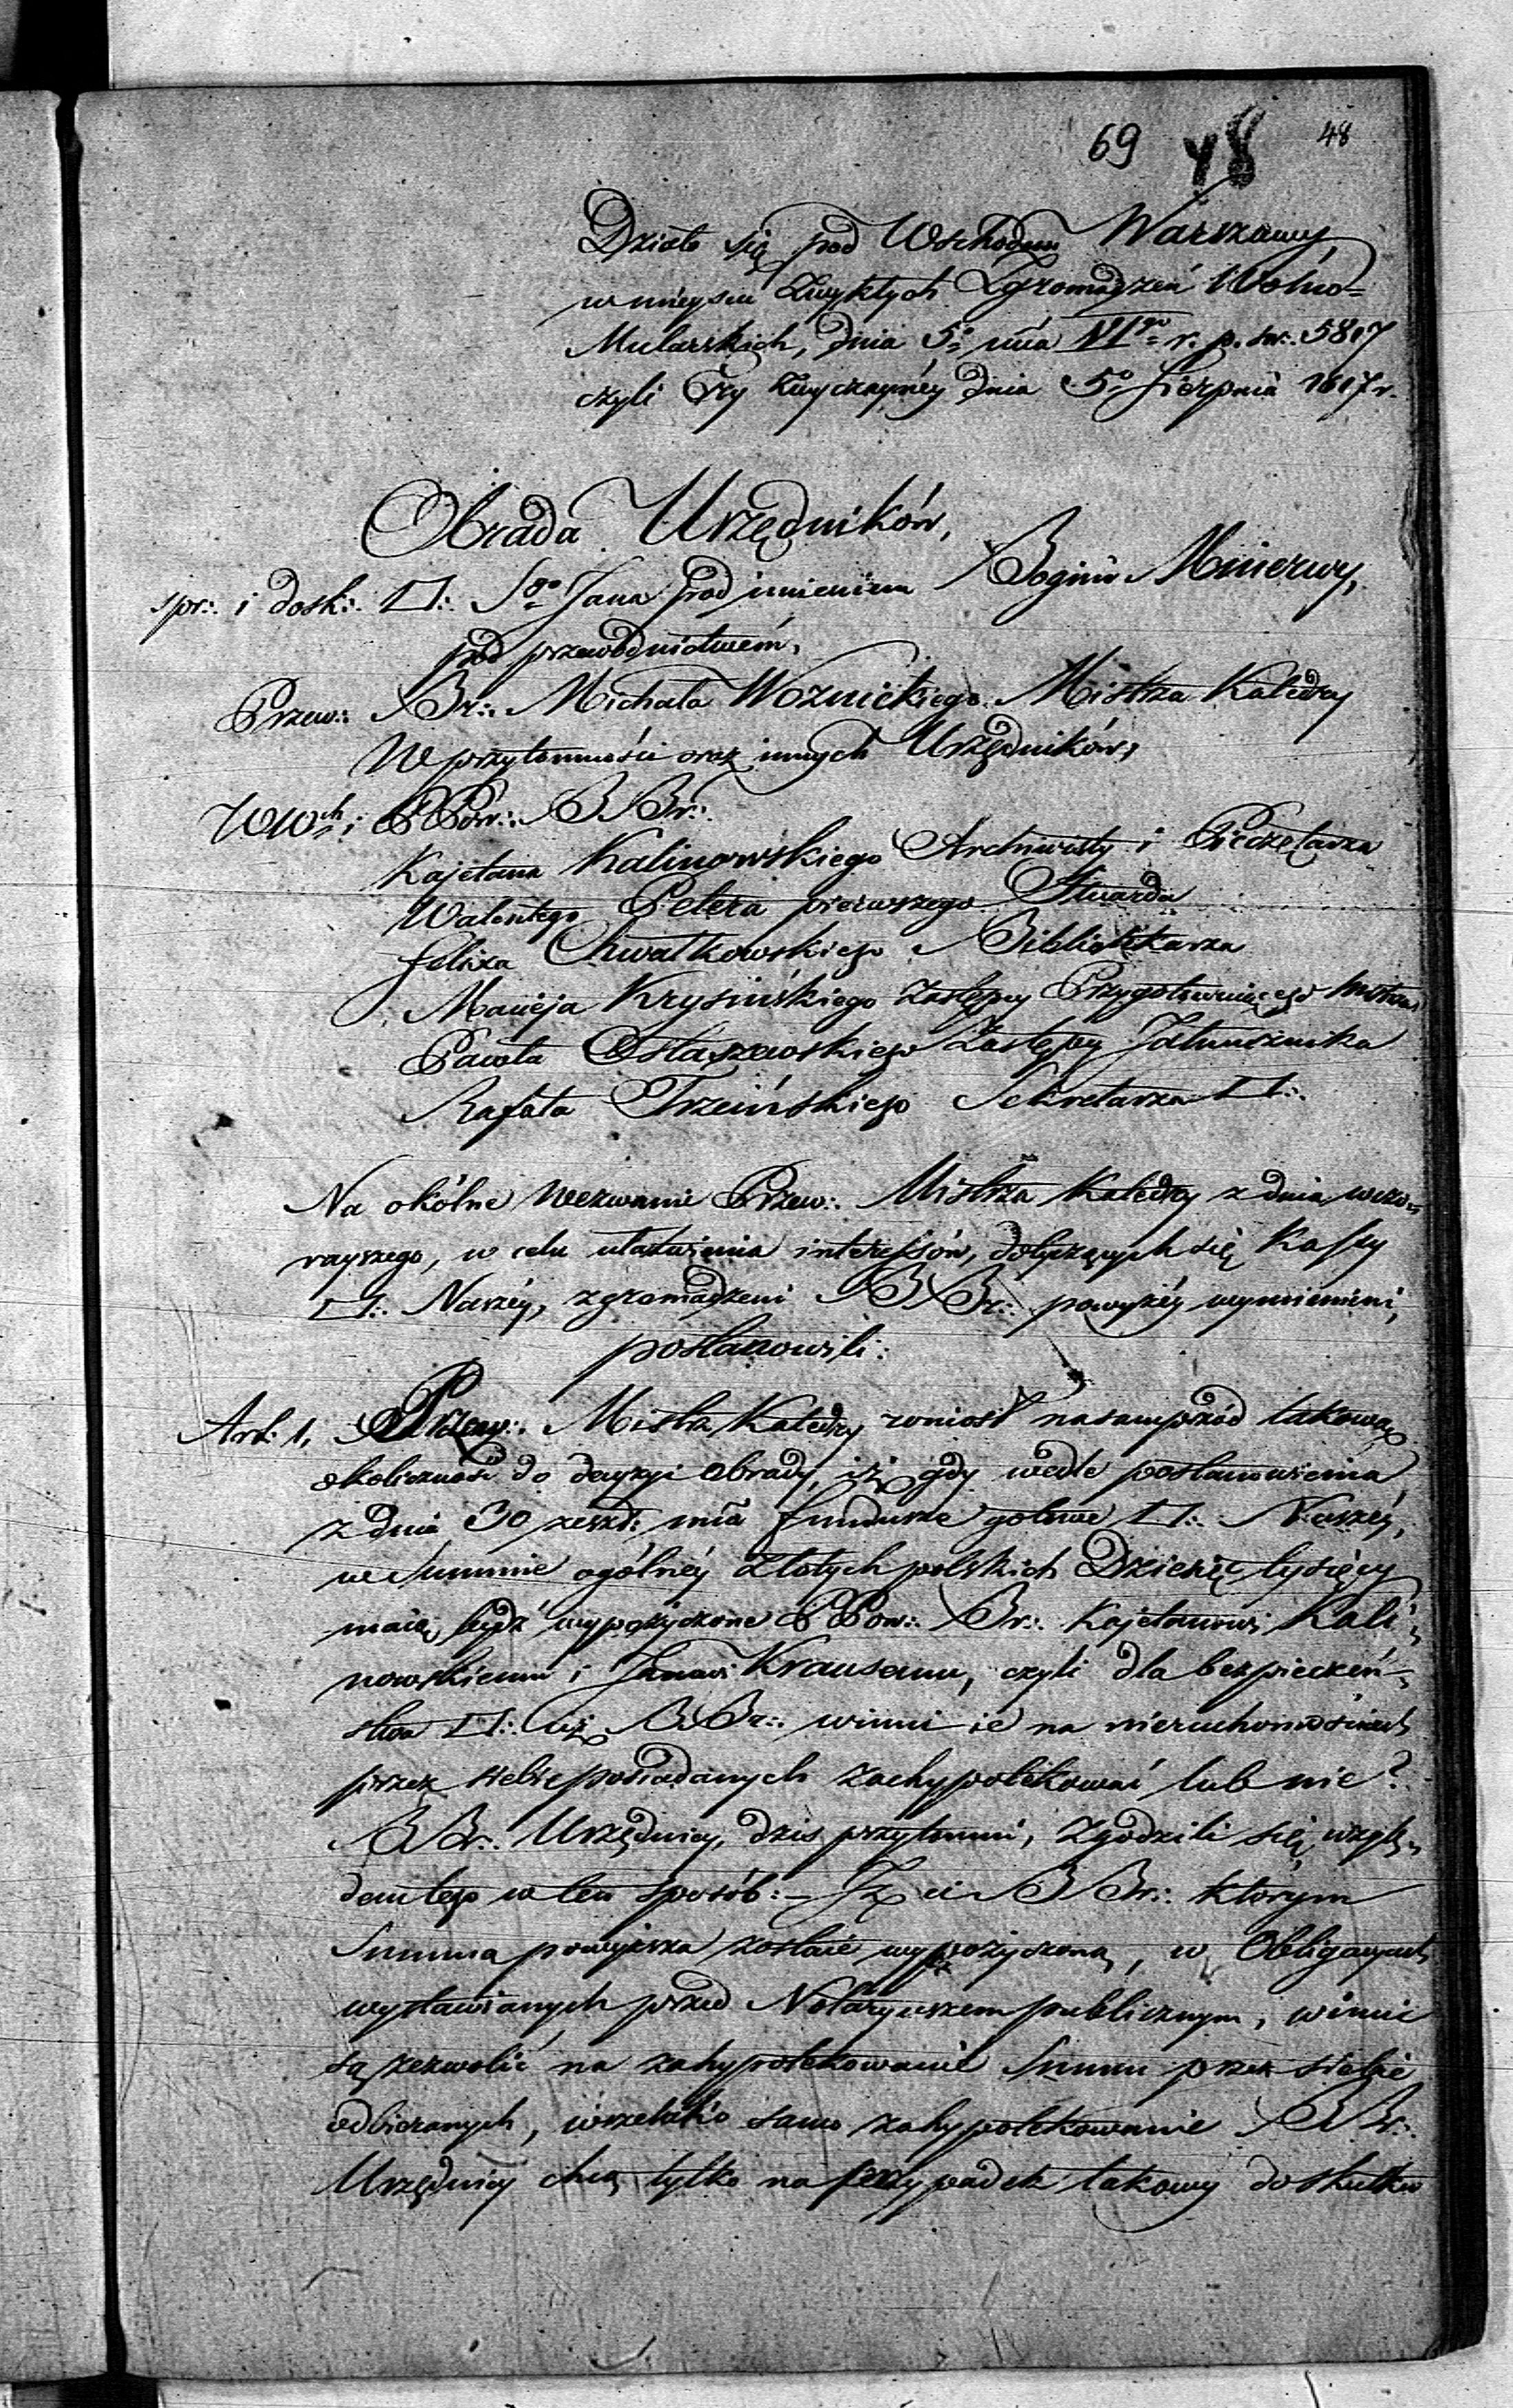 69 48 48
Działo się pod Wschodem Warszawy
w mieyscu Zwykłych Zgromadzeń Wolno=
Mularskich, dnia 5º mca VIgo r. p. św. 5817
czyli Ery Zwyczaynéy dnia 5º Sierpnia 1817 r.
Obrada Urzędników,
spr:. i dosk:. □:. Sgo Jana pod imieniem Bogini Minerwy,
pod przewodnictwem,
Przew:. Br:. Michała Woznickiego Mistrza Katedry
W przytomności oraz innych Urzędników,
WWch i PPow:. BBr:.
Kajetana Kalinowskiego Archiwisty i Pieczętarza
Walentego Petera pierwszego Stuarda
Felixa Chwałkowskiego Bibliotekarza
Macieja Krysińskiego Zastępcy Przygotowuiącego
Pawła Ostaszewskiego Zastępcy Jałmużnika
Rafała Trzcińskiego Sekretarza □:.
Na okólne Wezwanie Przew:. Mistrza Katedry z dnia wczo=
rayszego, w celu ułatwienia interessów, dotyczących się Kassy
□:. Naszéy, zgromadzeni BBr:. powyżéy wymienieni,
postanowili:
Art: 1, Przew:. Mistrz Katedry wniosł nasamprzód takową
okoliczność do decyzyi Obrady, iż gdy wedle postanowienia
z dnia 30 zeszł: mca fundusze gotowe □:. Naszéy,
w Summie ogólnéy Złotych polskich Dziesięć tysięcy
maią bydź wypożyczone PPow:. Br:. Kajetanowi Kali=
nowskiemu i Janowi Krausemu, czyli dla bezpieczeń=
stwa □:. ciż BBr:. winni ie na nieruchomościach
przez siebie posiadanych zachypotekować lub nie?
BBr:. Urzędnicy, dzis przytomni, Zgodzili się wzglę=
dem tego w ten sposób: – Iż ci BBr:. którym
Summa powyższa zostaie wypożyczoną, w Obligacyach
wystawianych przed Notaryuszem publicznym, winni
są zezwolić na zahypotekowanie Summ przez siebie
odbieranych, wszelako samo zahypotekowanie BBr:.
Urzędnicy chcą tylko na przypadek takowy do skutku